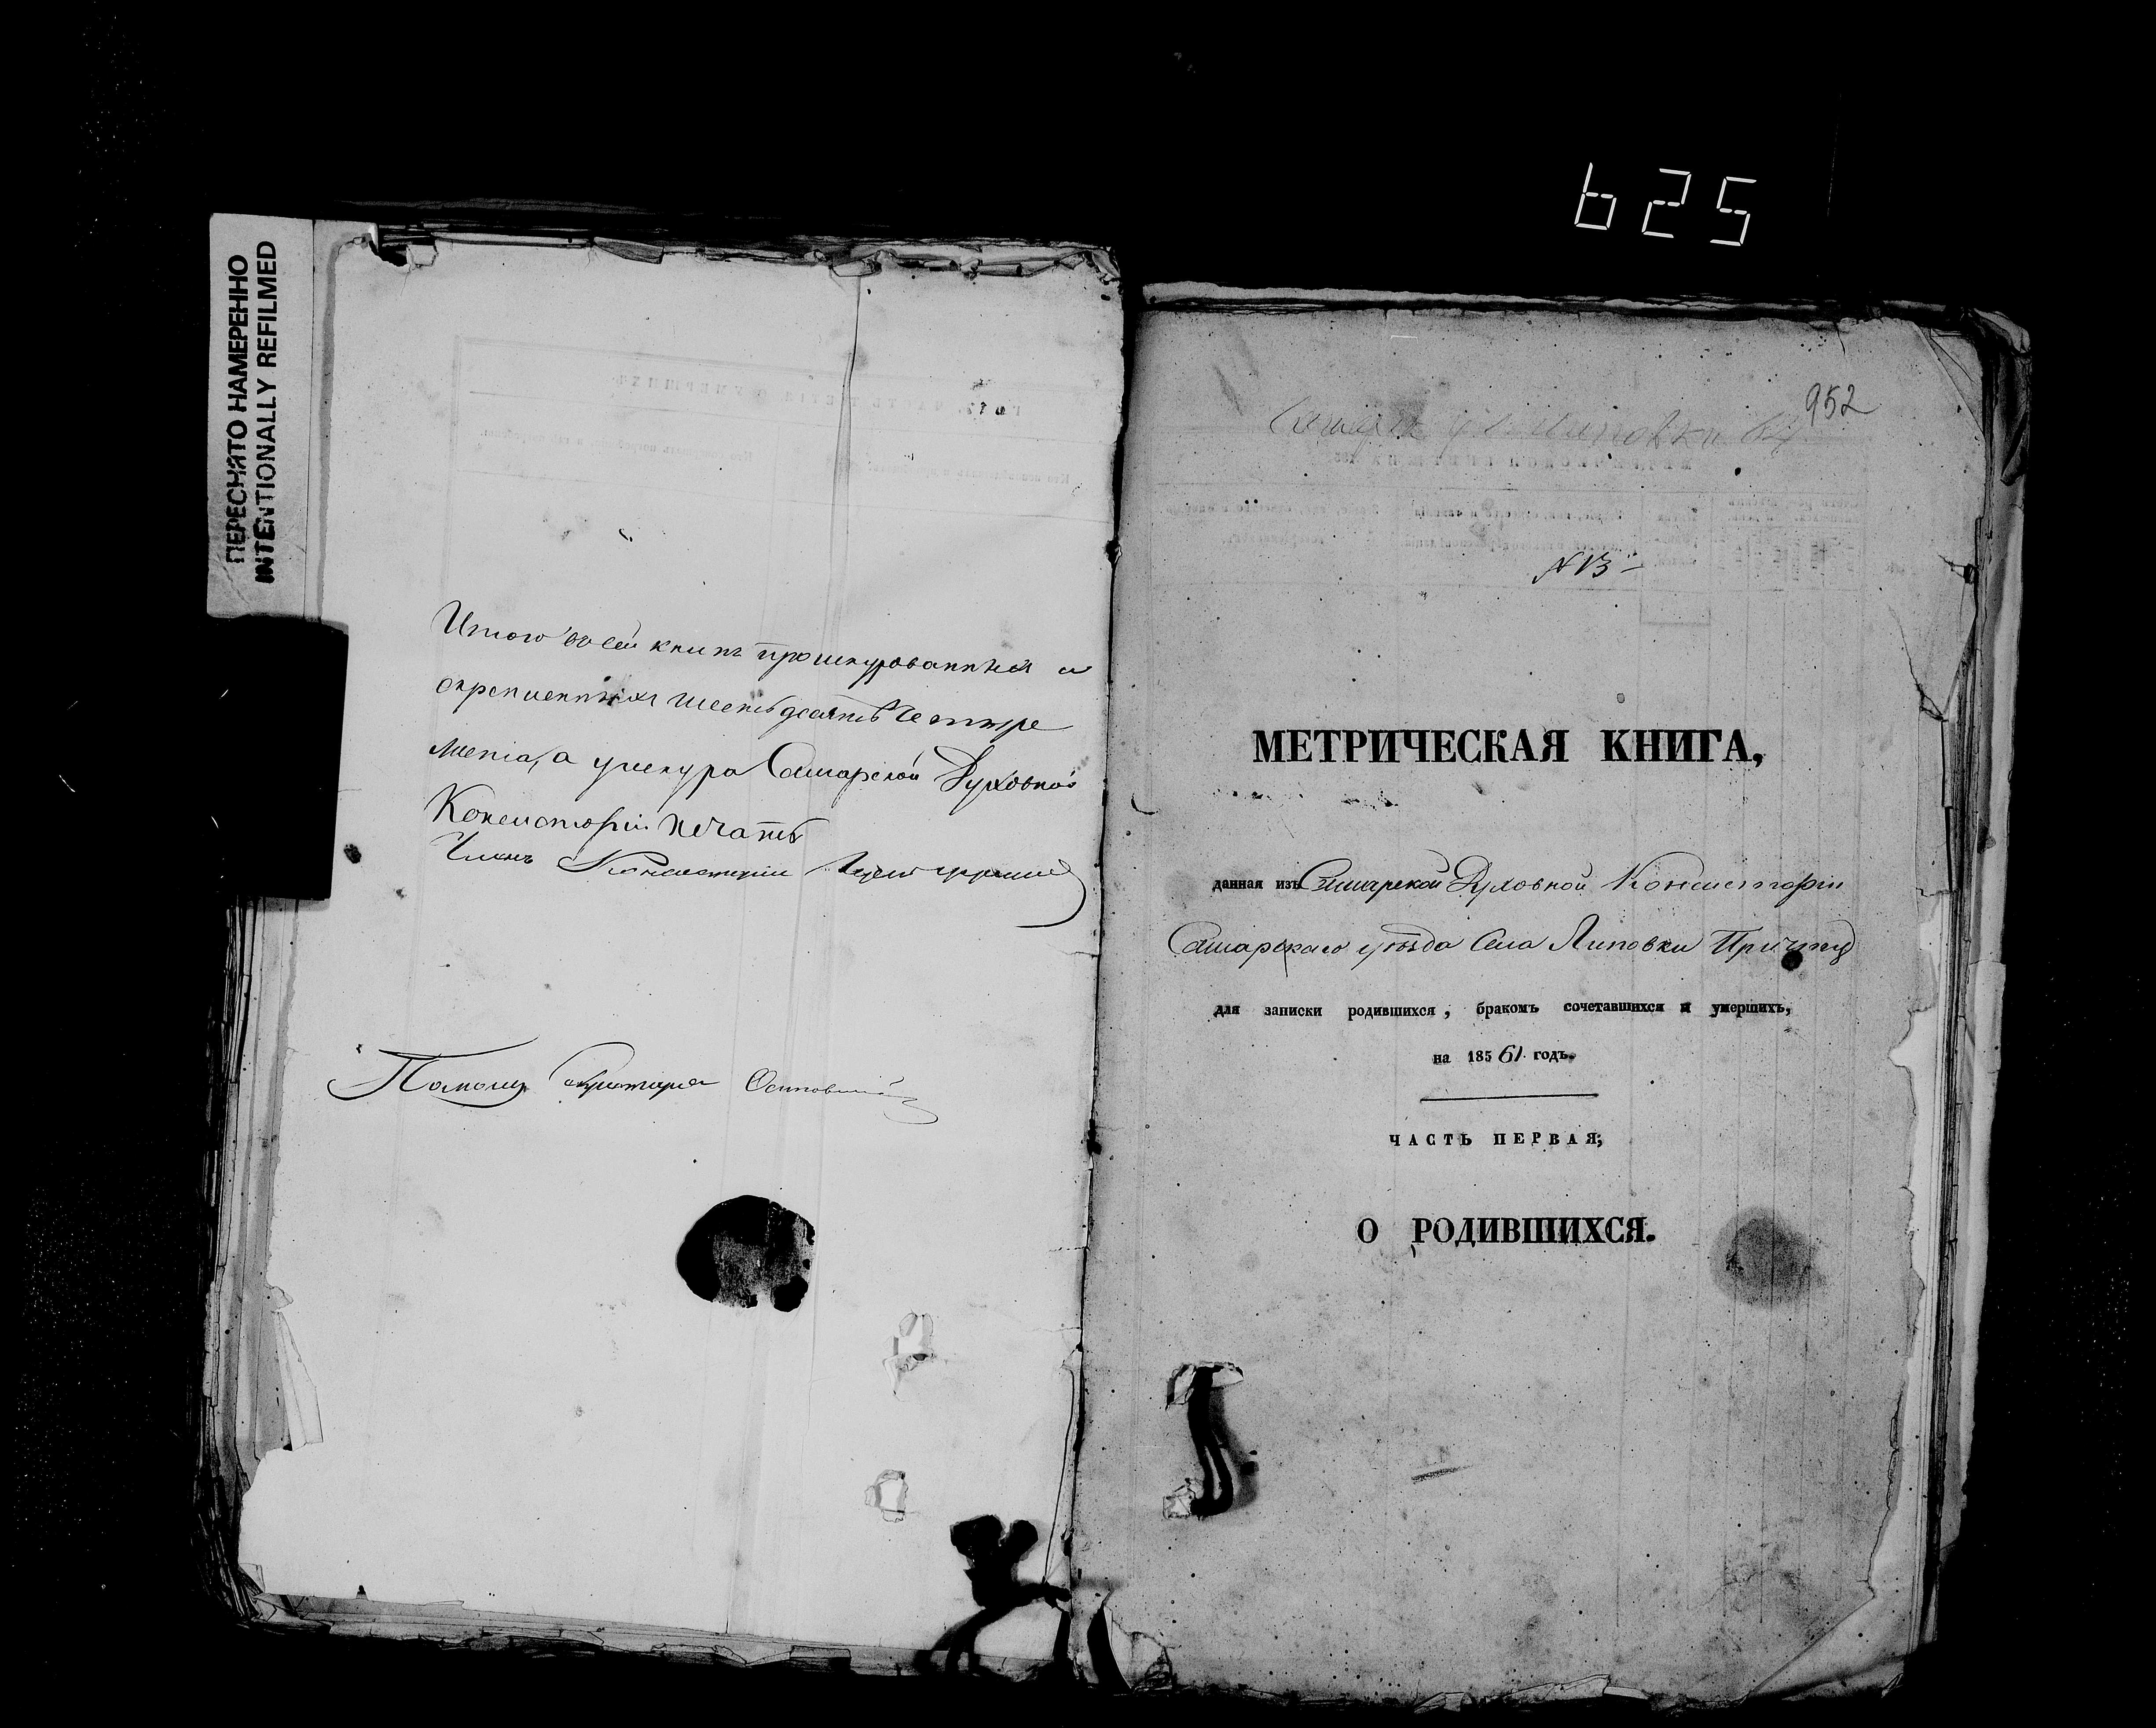 625
ПЕРЕСНЯТО НАМЕРЕННО
INTENTIONALLY REFILMED
Итого въ сей книгѣ прошнурованныхъ и
скрепленныхъ шестьдесятъ четыре
листа, а у шнура Самарской Духовной
Консисторіи печать
Членъ Консисторіи
Помощ. Секретаря Осиповскій
952
Самар. у. с. Липовки
N 13
МЕТРИЧЕСКАЯ КНИГА,
данная изъ Самарской Духовной Консисторіи
Самарскаго уѣзда Села Липовки Причту
для записки родившихся, бракомъ сочетавшихся и умершихъ,
на 185 61 годъ.
ЧАСТЬ ПЕРВАЯ,
О РОДИВШИХСЯ.